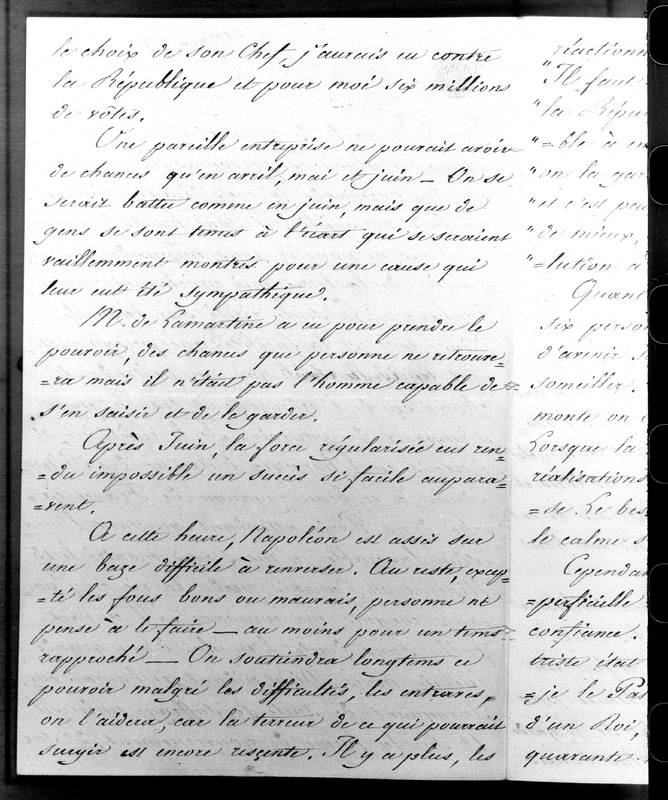 le choix de son Chef, j'aurais eu contre
la République et pour moi six millions
de vôtes.
Une pareille entreprise ne pouvait avoir
de chances qu'en avril, mai et juin — On se
serait battu comme en juin, mais que de
gens se sont tenus à l'écart qui se seraient
vaillemment montrés pour une cause qui
leur eut été sympathique.
M. de Lamartine a eu pour prendre le
pouvoir, des chances que personne ne retrouve=
=ra mais il n'était pas l'homme capable de
s'en saisir et de le garder.
Après Juin, la force régularisée eut ren=
=du impossible un succès si facile aupara=
=vent.
A cette heure, Napoléon est assis sur
une baze difficile à renverser. Au reste, excep=
=té les fous bons ou mauvais, personne ne
pense à le faire — au moins pour un tems
rapproché — On soutiendra longtems ce
pouvoir malgré les difficultés, les entraves,
on l'aidera, car la terreur de ce qui pourrait
surgir est encore rescente. Il y a plus, les
réactionn
"Il faut
"la Répu
"=ble à en
"on la gar
"et c'est peu
"de mieux,
"=lution à
Quant
six person
d'avenir s
someiller.
monte on
Lorsque la
réalisations
=se. Le bes
le calme s
Cependan
=perficielle
confiance.
triste état
=je le Pas
d'un Roi,
quarante